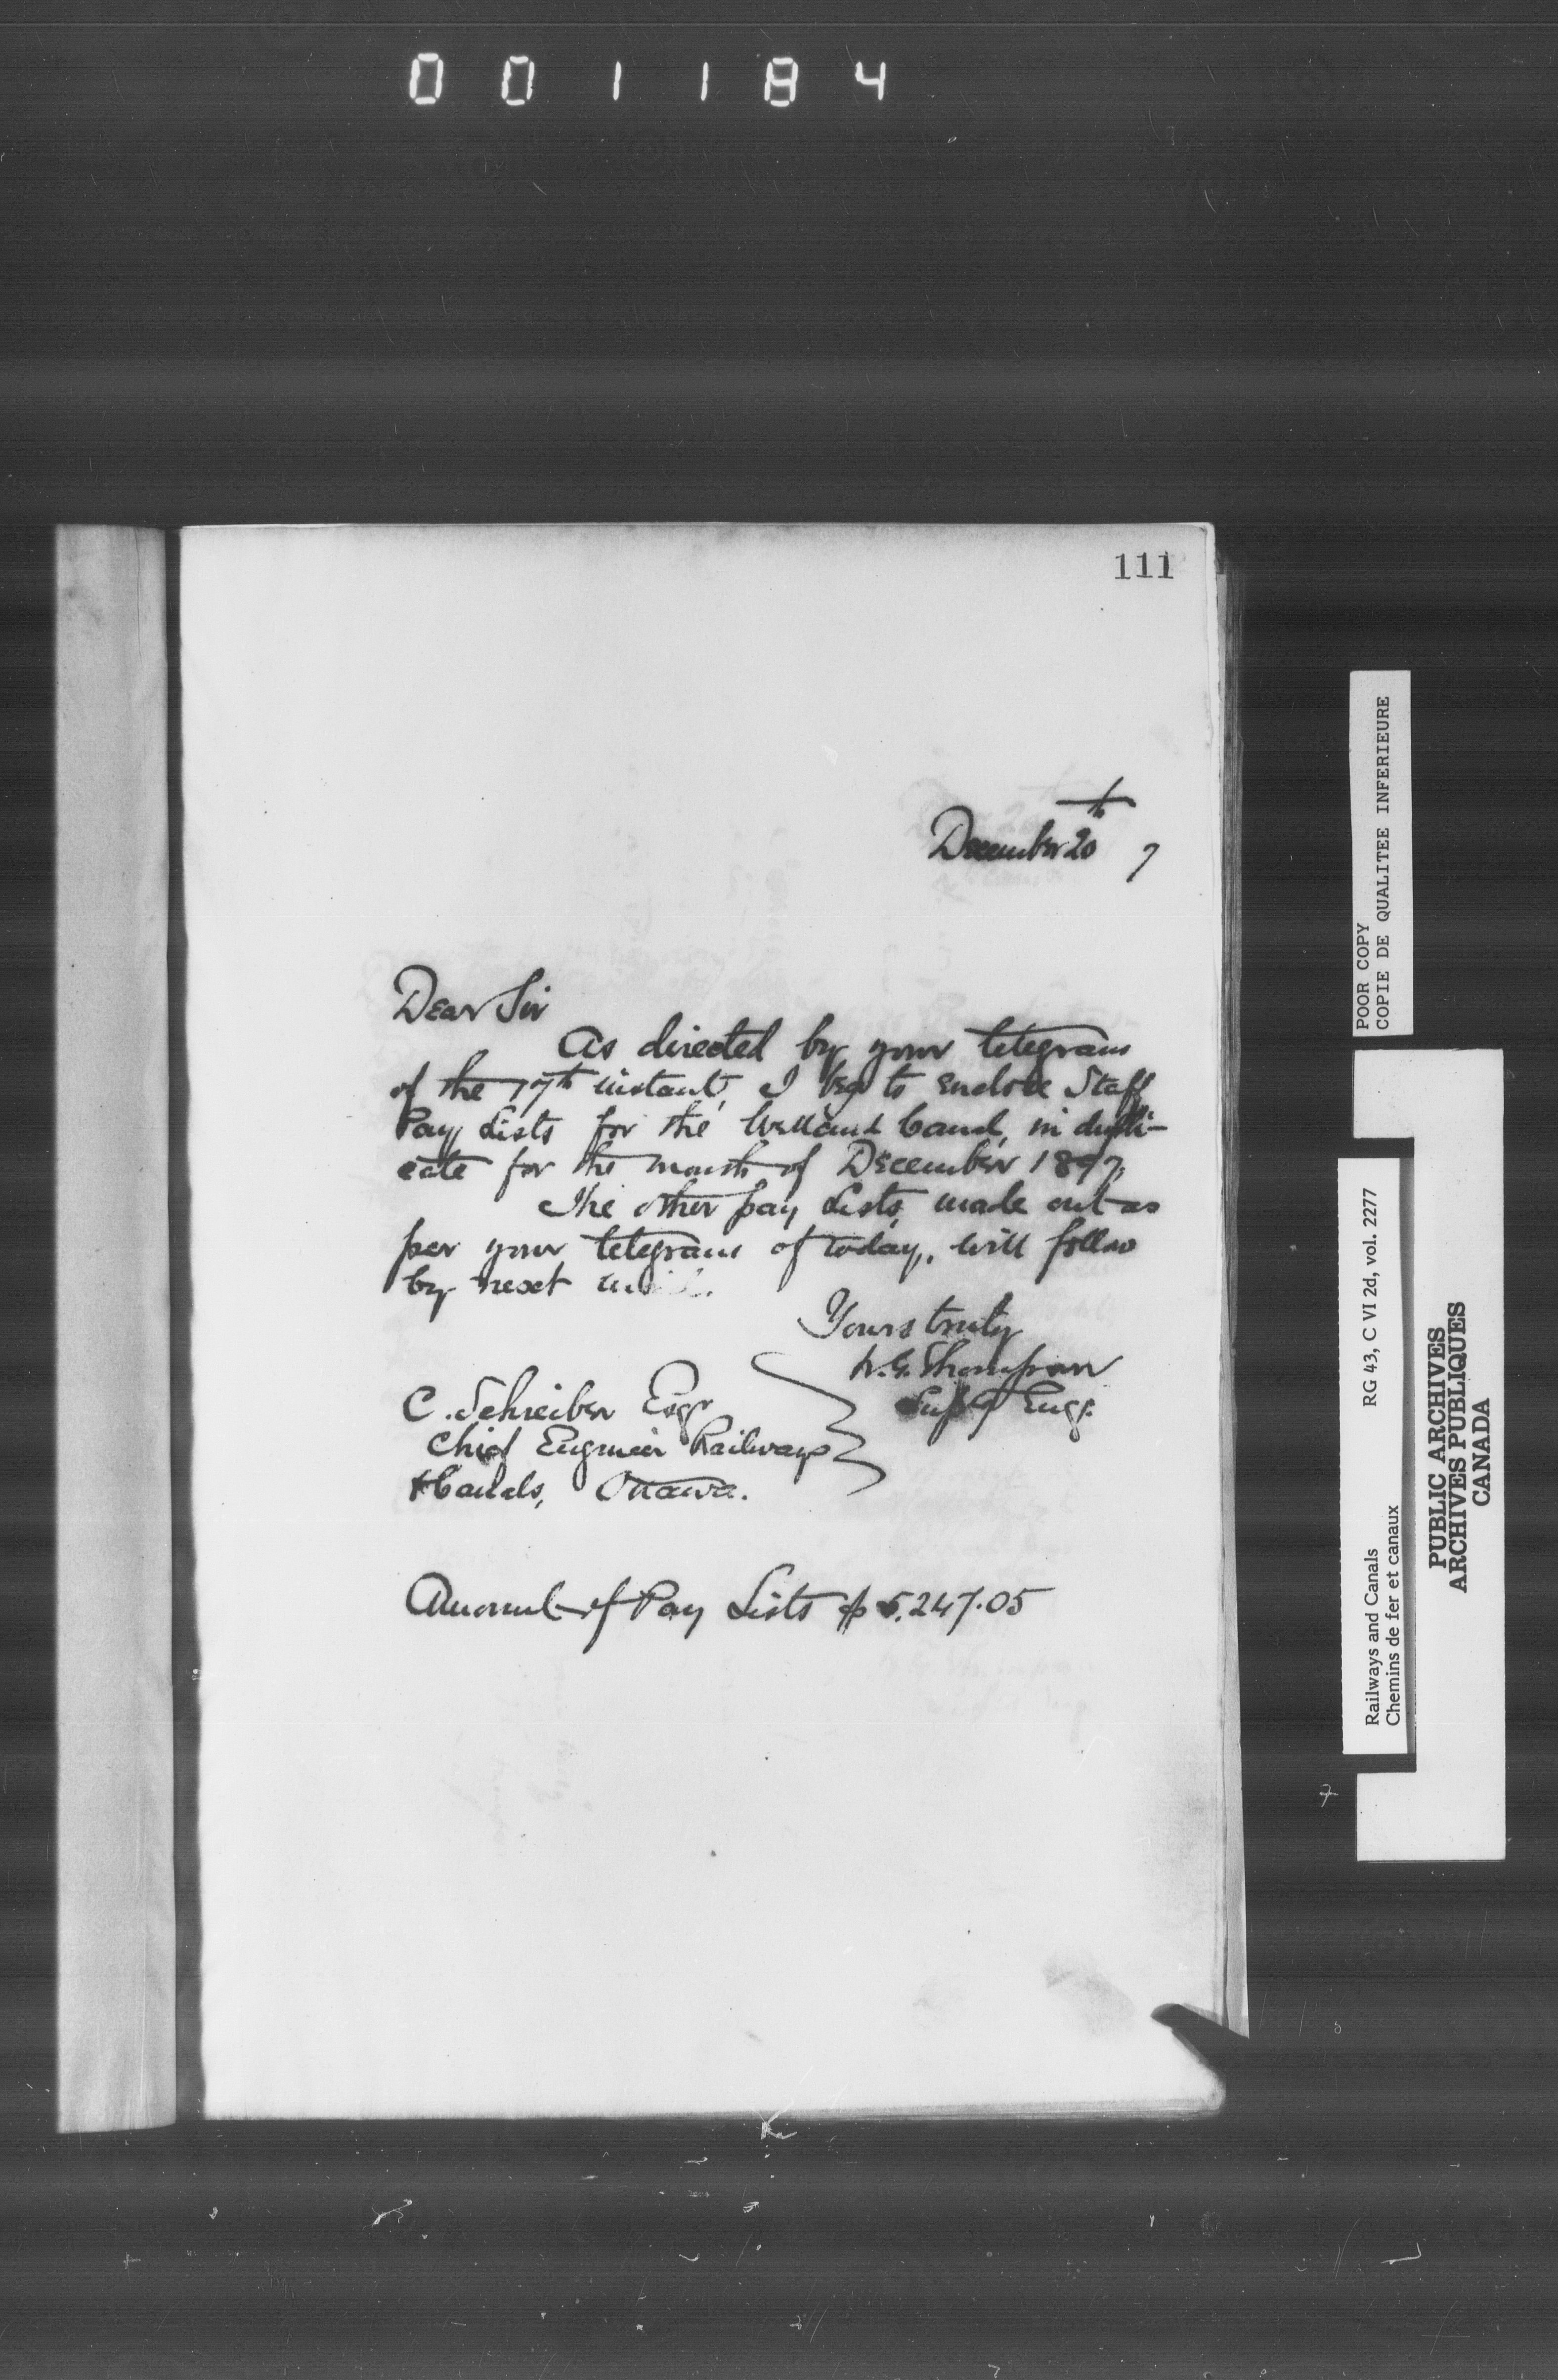 001184
111
December 20th 7
Dear Sir
As directed by your telegram
of the 17th instant, I beg to enclose Staff
Pay Lists for the Welland Canal, in dupli-
cate for the month of December 1897.
The other pay Lists, made out as
per your telegram of today, will follow
by next
Yours truly
W.G. Thompson
Supt Engr.
C. Schreiber Esqr
Chief Engineer Railways
& Canals, Ottawa.
Amount of Pay Lists $ 5,247.05
POOR COPY
COPIE DE QUALITEE INFERIEURE
Railways and Canals RG 43, C VI 2d, vol. 2277
Chemins de fer et canaux
PUBLIC ARCHIVES
ARCHIVES PUBLIQUES
CANADA